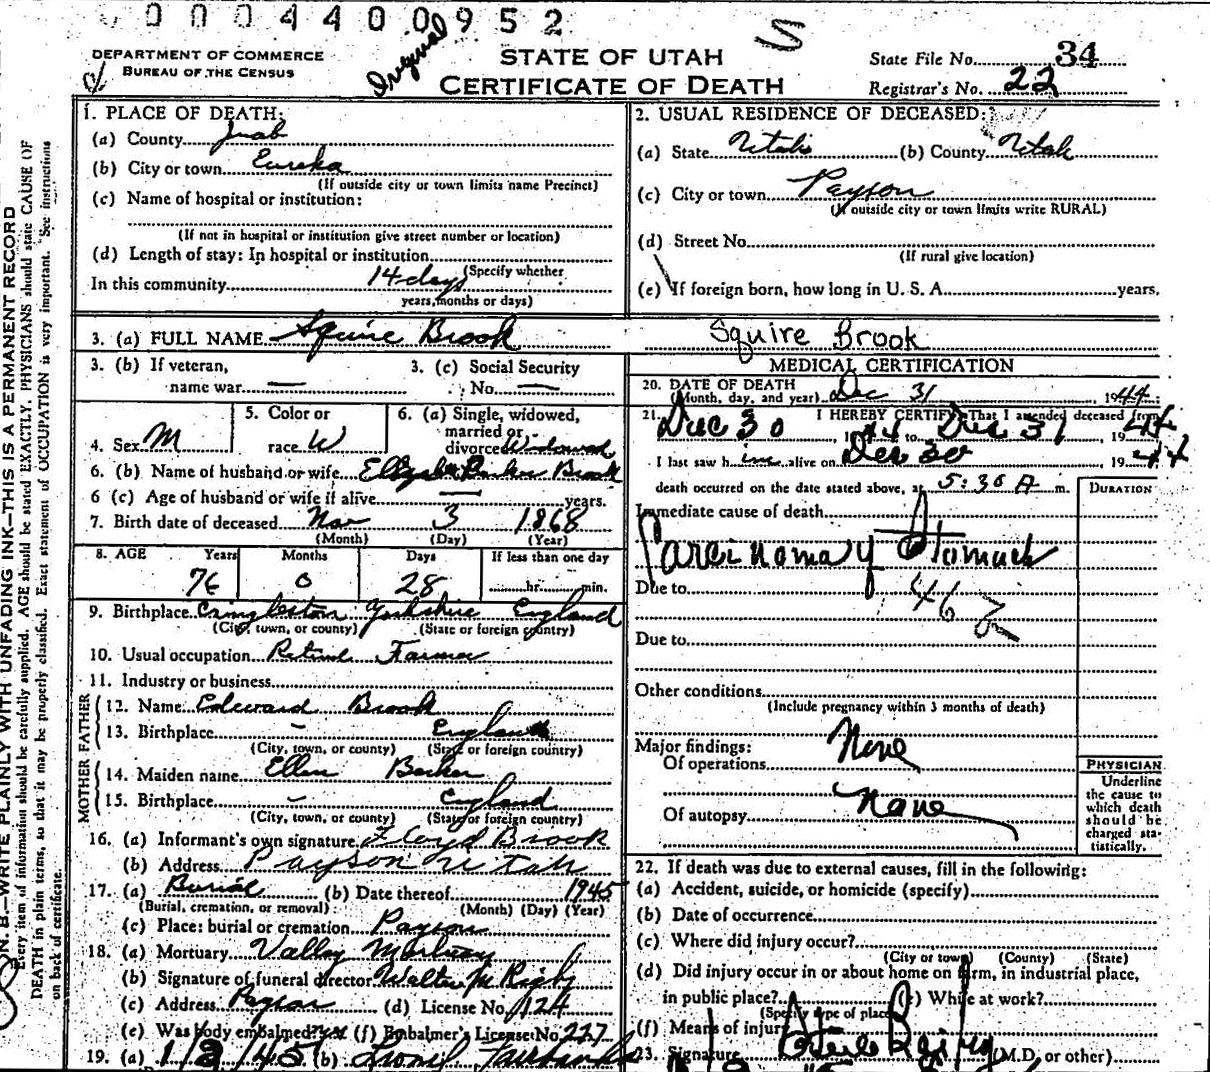 0 0 0 4 4 0 0 9 5 2
Original
DEPARTMENT OF COMMERCE
BUREAU OF THE CENSUS
STATE OF UTAH
CERTIFICATE OF DEATH
State File No. 34
Registrar's No. 22
N. B.—WRITE PLAINLY WITH UNFADING INK—THIS IS A PERMANENT RECORD
Every item of information should be carefully supplied. AGE should be stated EXACTLY. PHYSICIANS should state CAUSE OF
DEATH in plain terms, so that it may be properly classified. Exact statement of OCCUPATION is very important. See instructions
on back of certificate.
1. PLACE OF DEATH:
(a) County Juab
(b) City or town Eureka
(If outside city or town limits name Precinct)
(c) Name of hospital or institution:
(If not in hospital or institution give street number or location)
(d) Length of stay: In hospital or institution
(Specify whether
In this community 14 days
years, months or days)
2. USUAL RESIDENCE OF DECEASED:
(a) State Utah (b) County Utah
(c) City or town Payson
(If outside city or town limits write RURAL)
(d) Street No.
(If rural give location)
(e) If foreign born, how long in U. S. A. years.
3. (a) FULL NAME Squire Brook Squire Brook
3. (b) If veteran,
name war —
3. (c) Social Security
No. —
4. Sex M
5. Color or
race W
6. (a) Single, widowed,
married or
divorced Widowed
6. (b) Name of husband or wife Brook
6 (c) Age of husband or wife if alive — years.
7. Birth date of deceased Nov 3 1868
(Month) (Day) (Year)
8. AGE Years Months Days If less than one day
76 0 28 hr. min.
9. Birthplace Cringleston Yorkshire England
(City, town, or county) (State or foreign country)
10. Usual occupation Retired Farmer
11. Industry or business
FATHER
12. Name Edward Brook
13. Birthplace – England
(City, town, or county) (State or foreign country)
MOTHER
14. Maiden name Ellen Barker
15. Birthplace – England
(City, town, or county) (State or foreign country)
16. (a) Informant's own signature Floyd Brook
(b) Address Payson Utah
17. (a) Burial (b) Date thereof 1945
(Burial, cremation, or removal) (Month) (Day) (Year)
(c) Place: burial or cremation Payson
18. (a) Mortuary Valley Mortuary
(b) Signature of funeral director Walter M Rigby
(c) Address Payson (d) License No. 124
(e) Was body embalmed? yes (f) Embalmer's License No. 227
19. (a) 1/2/45 (b) Lionel Fairbanks
MEDICAL CERTIFICATION
20. DATE OF DEATH
(Month, day, and year) Dec 31 1944
21. I HEREBY CERTIFY That I attended deceased from
Dec 30, 1944 to Dec 31, 1944
I last saw him alive on Dec 30, 1944
death occurred on the date stated above, at 5:30 A m.
DURATION
Immediate cause of death
Carcinoma of Stomach
Due to
46 b
Due to
Other conditions
(Include pregnancy within 3 months of death)
Major findings:
Of operations None
Of autopsy None
PHYSICIAN
Underline
the cause to
which death
should be
charged sta-
tistically.
22. If death was due to external causes, fill in the following:
(a) Accident, suicide, or homicide (specify)
(b) Date of occurrence
(c) Where did injury occur?
(City or town) (County) (State)
(d) Did injury occur in or about home on farm, in industrial place,
in public place? (e) While at work?
(Specify type of place)
(f) Means of injury
23. Signature Bailey (M.D. or other)